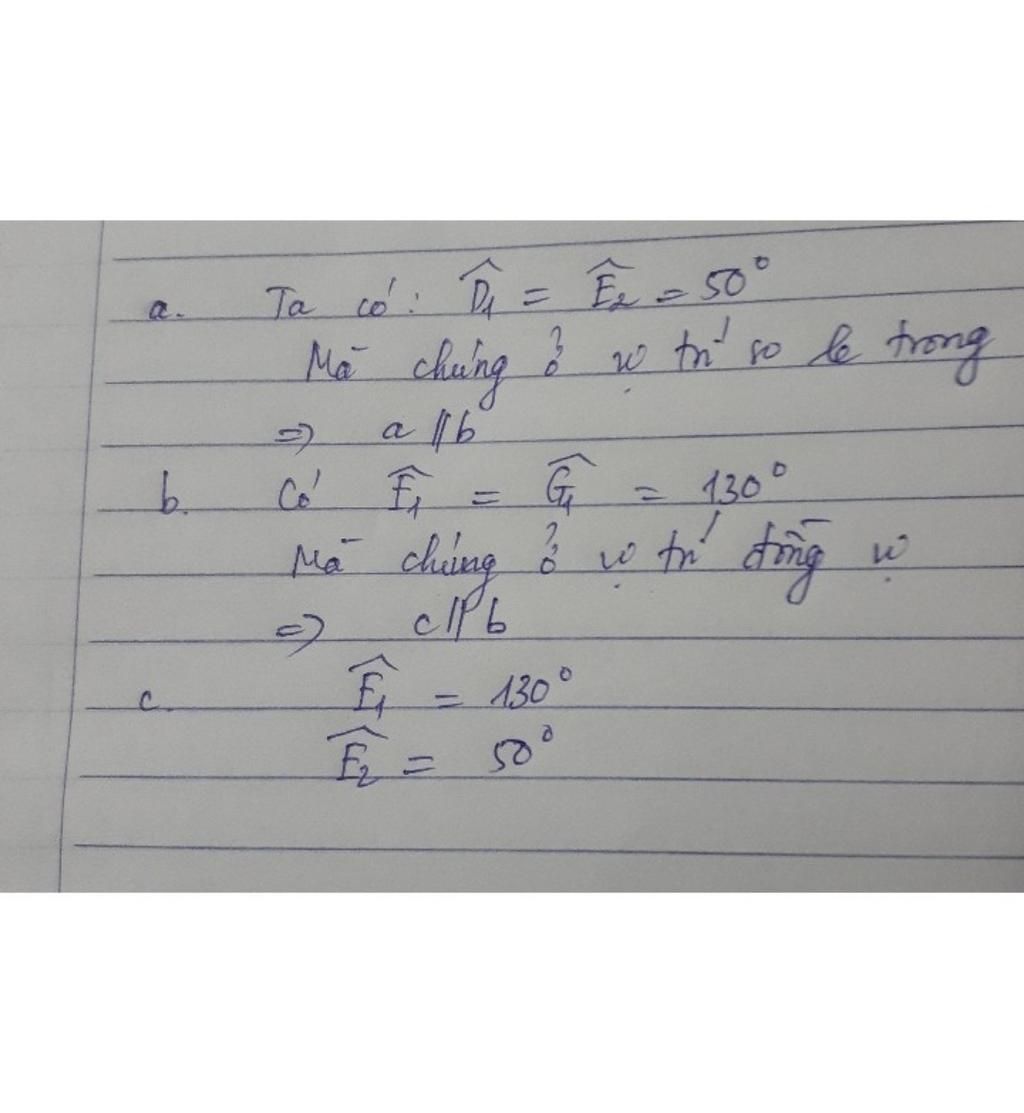 a. Ta có: D̂₁ = Ê₂ = 50°
Mà chúng ở vị trí so le trong
=> a // b
b. Có F̂₁ = Ĝ₁ = 130°
Mà chúng ở vị trí đồng vị
=> c // b
c. Ê₁ = 130°
Ê₂ = 50°